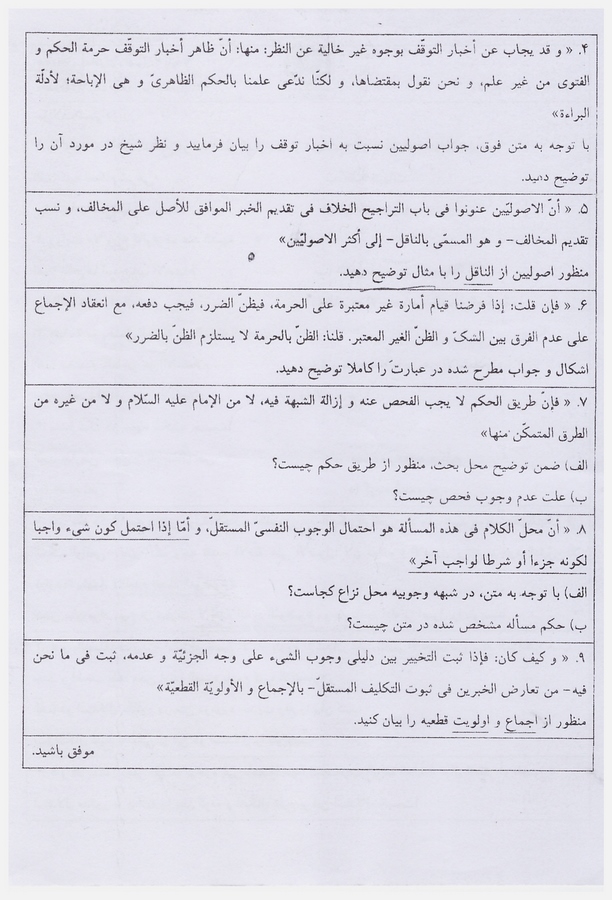 ۴. « و قد يجاب عن أخبار التوقّف بوجوه غير خالية عن النظر: منها: أنّ ظاهر أخبار التوقّف حرمة الحكم و
الفتوى من غير علم، و نحن نقول بمقتضاها، و لكنّا ندّعى علمنا بالحكم الظاهرىّ و هى الإباحة؛ لأدلّة
البراءة»
با توجه به متن فوق، جواب اصوليين نسبت به اخبار توقف را بيان فرماييد و نظر شيخ در مورد آن را
توضيح دهيد.
۵. « أنّ الاصوليّين عنونوا فى باب التراجيح الخلاف فى تقديم الخبر الموافق للأصل على المخالف، و نسب
تقديم المخالف- و هو المسمّى بالناقل- إلى أكثر الاصوليّين»
منظور اصوليين از الناقل را با مثال توضيح دهيد.
۶. « فإن قلت: إذا فرضنا قيام أمارة غير معتبرة على الحرمة، فيظنّ الضرر، فيجب دفعه، مع انعقاد الإجماع
على عدم الفرق بين الشكّ و الظنّ الغير المعتبر. قلنا: الظنّ بالحرمة لا يستلزم الظنّ بالضرر»
اشكال و جواب مطرح شده در عبارت را كاملا توضيح دهيد.
۷. « فإنّ طريق الحكم لا يجب الفحص عنه و إزالة الشبهة فيه، لا من الإمام عليه السّلام و لا من غيره من
الطرق المتمكّن منها»
الف) ضمن توضيح محل بحث، منظور از طريق حكم چيست؟
ب) علت عدم وجوب فحص چيست؟
۸. « أنّ محلّ الكلام فى هذه المسألة هو احتمال الوجوب النفسىّ المستقلّ، و أمّا إذا احتمل كون شىء واجبا
لكونه جزءا أو شرطا لواجب آخر»
الف) با توجه به متن، در شبهه وجوبيه محل نزاع كجاست؟
ب) حكم مسأله مشخص شده در متن چيست؟
۹. « و كيف كان: فإذا ثبت التخيير بين دليلى وجوب الشىء على وجه الجزئيّة و عدمه، ثبت فى ما نحن
فيه- من تعارض الخبرين فى ثبوت التكليف المستقلّ- بالإجماع و الأولويّة القطعيّة»
منظور از اجماع و اولويت قطعيه را بيان كنيد.
موفق باشيد.